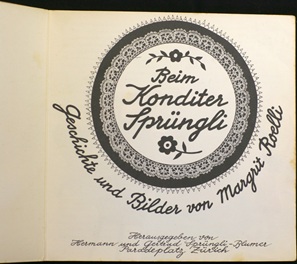 Beim
Konditer
Sprüngli
Geschichte und Bilder von Margrit Roelli
Herausgegeben von
Hermann und Gertrud Sprüngli-Blumer
Paradeplatz Zürich